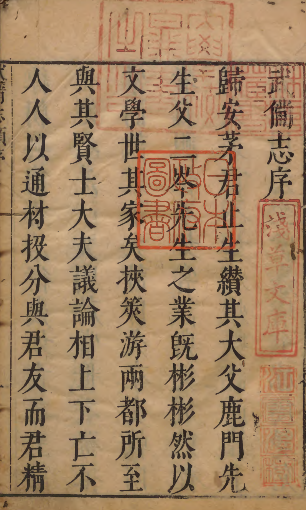 武備志序
歸安茅君止生纘其大父鹿門先
生父二岑先生之業旣彬彬然以
文學世其家矣挾筴游兩都所至
與其賢士大夫議論相上下亡不
人人以通材投分與君友而君精
淺草文庫
圖書